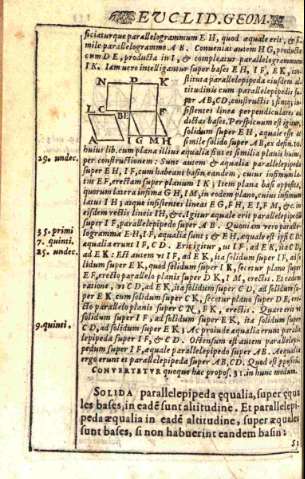 EVCLID. GEOM.
sciaturque parallelogrammum E H, quod aquale erit, & si-
mile parallelogrammo A B. Conueniat autem H G, producta
cum D E, producta in I, & compleatur parallelogrammum
I K. Iam vero intelligantur super bases E H, I F, E K, con-
stituta parallelepipeda eiusdem al-
titudinis cum parallelepipedis su-
per AB, CD, constructis; sintque in-
sistentes linea perpendiculares ad
dictas bases. Perspicuum est igitur,
solidum super E H, aquale esse &
simile solido super A B, ex defin. 10.
N D K
L C BE F
A I G M H
huius lib. cum plana illius aqualia sint & similia planis huius
per constructionem: Sunt autem & aqualia parallelepipeda
super E H, I F, cum habeant basin eandem, cuius
in E F, erectam super planum I K; Item plana basi opposita,
quorum latera insima G H, I M, in eodem plano, cuius infimum
latus I H; atque insistentes lineas E G, F H, E I, F M, & in
eisdem rectis lineis I H, &c. Igitur aquale erit parallelepipedum
super I F, parallelepipedo super A B. Quoniam vero parallelo-
gramma E H, I F, aqualia sunt; & E H, aquale est ipsi C D;
aqualia erunt I F, C D. Erit igitur, vt I F, ad E K, ita C D,
ad E K: Est autem vt I F, ad E K, ita solidum super I F, ad so-
lidum super E K, quod solidum super I K, secetur plano super
E F, erecto parallelo planis super D K, I M, erectis. Et eadem
ratione, vt C D, ad E K, ita solidum super C D, ad solidum su-
per E K cum solidum super C K, secetur plano super D E, ere-
cto parallelo planis super C N, F K, erectis. Quare erit vt
solidum super I F, ad solidum super E K, ita solidum super
C D, ad solidum super E K; Ac proinde aqualia erunt paral-
lepipeda super I F, & C D. Ostensum est autem parallelepi-
pedum super I F, aquale parallelepipedo super A B. Aequalia
ergo erunt & parallelepipeda super A B, C D. Quod est propositum.
CONVERTETVR quoque hac propos. 31. in hunc modum.
SOLIDA parallelepipeda æqualia, super æqua-
les bases, in eadē sunt altitudine. Et parallelepi-
peda æqualia in eadē altitudine, super æquales
sunt bases, si non habuerint eandem basin:
SI
29. vndec.
35. primi
7. quinti.
25. vndec.
9. quinti.